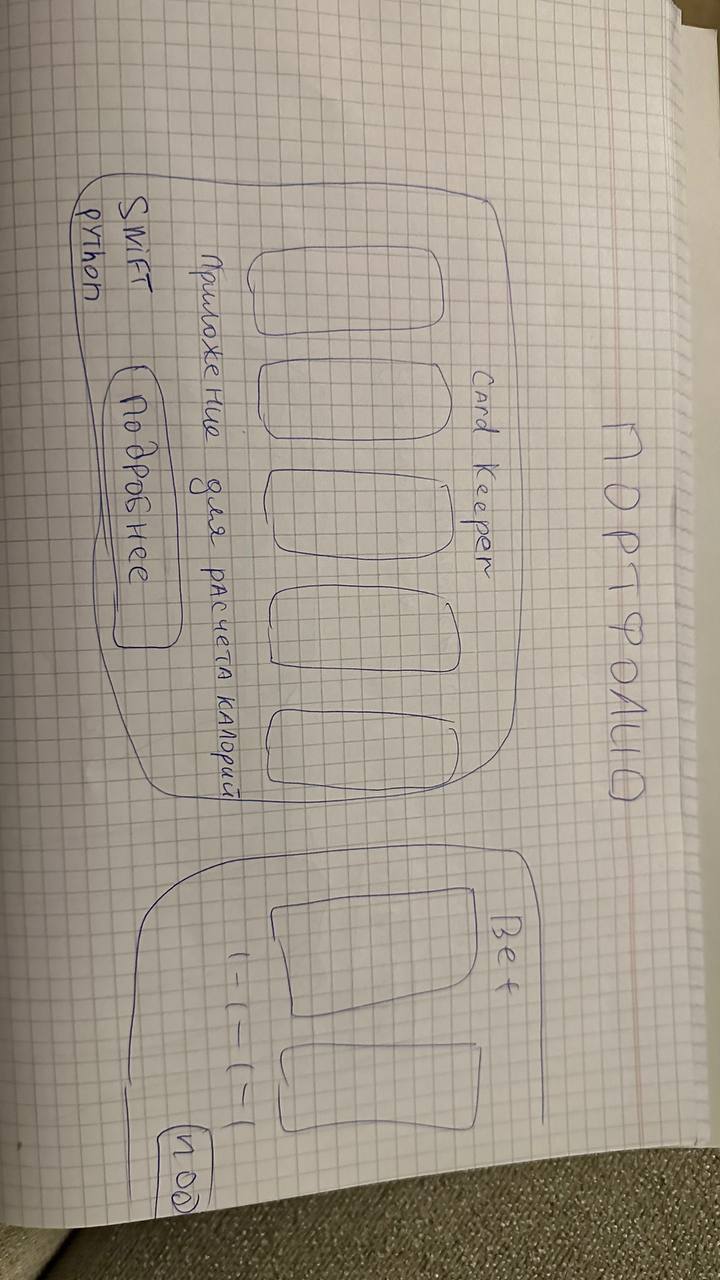 ПОРТФОЛИО
Card Keeper
Приложение для расчета калорий
Swift
python
Подробнее
Bet
под